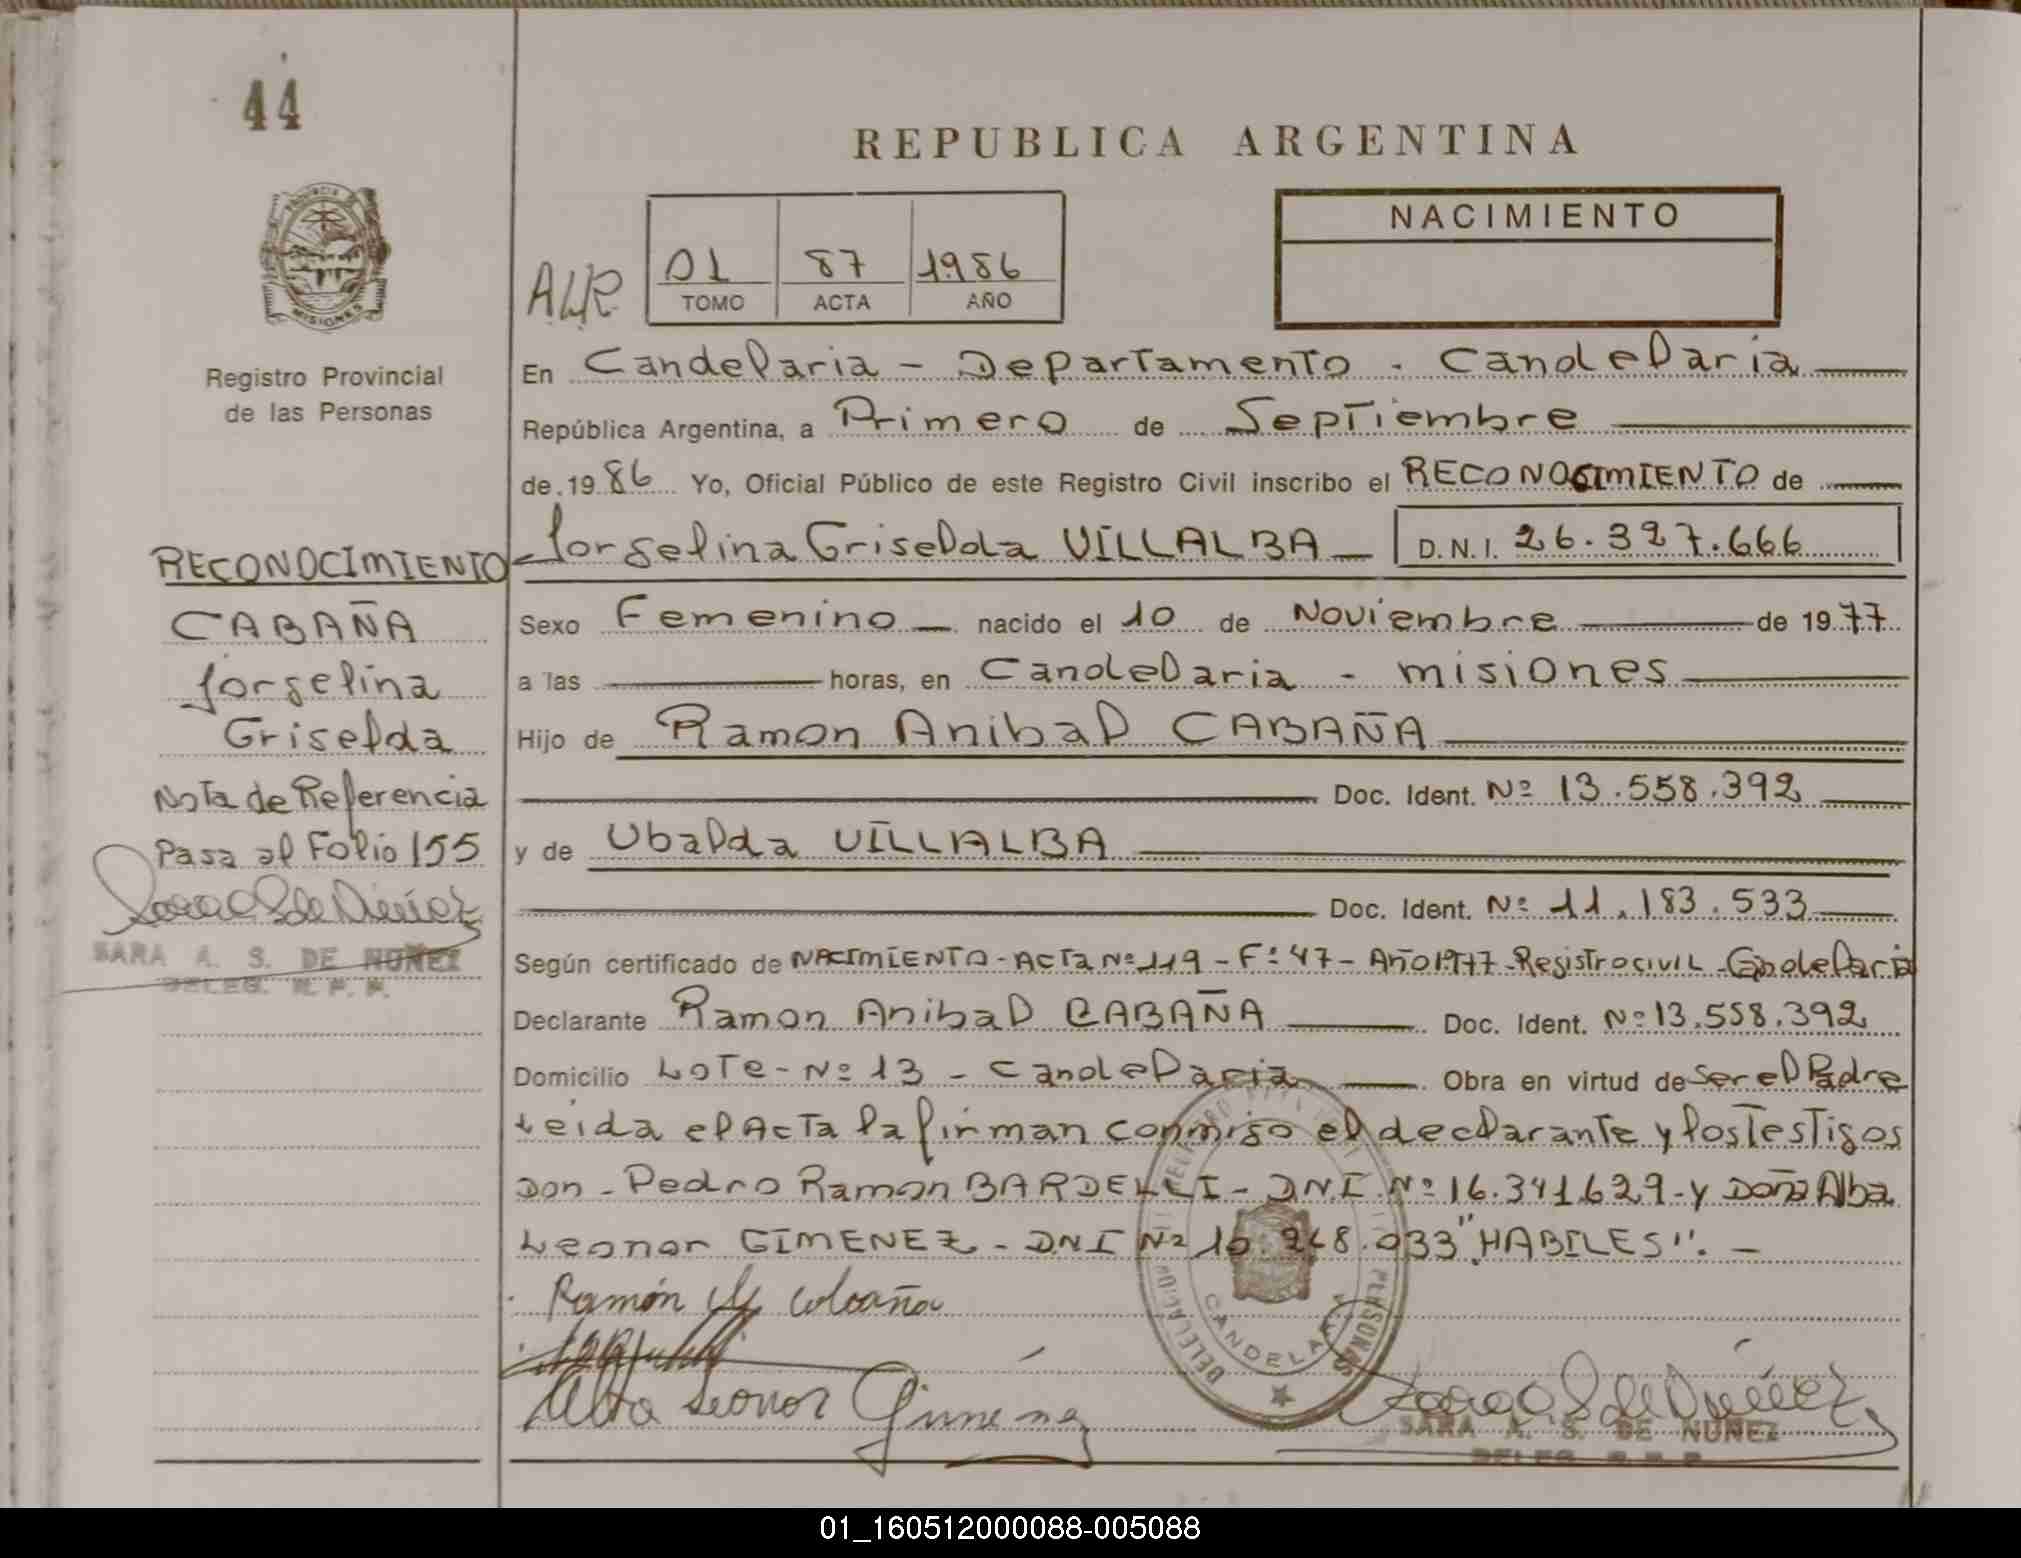 44
REPUBLICA ARGENTINA
NACIMIENTO
01 87 1986
TOMO ACTA AÑO
PROVINCIA DE
MISIONES
Registro Provincial
de las Personas
En Candelaria - Departamento - Candelaria
República Argentina, a Primero de Septiembre
de 1986 Yo, Oficial Público de este Registro Civil inscribo el RECONOCIMIENTO de
Jorgelina Griselda VILLALBA D.N.I. 26.327.666
Sexo Femenino nacido el 10 de Noviembre de 1977
a las horas, en Candelaria - misiones
Hijo de Ramon Anibal CABAÑA
Doc. Ident. Nº 13.558.392
y de Ubalda VILLALBA
Doc. Ident. Nº 11.183.533
Según certificado de NACIMIENTO - ACTA Nº 119 - Fº 47 - Año 1977 - Registro civil - Candelaria
Declarante Ramon Anibal CABAÑA Doc. Ident. Nº 13.558.392
Domicilio Lote - Nº 13 - Candelaria Obra en virtud de ser el Padre
Leida el Acta la firman conmigo el declarante y los testigos
Don - Pedro Ramon BARDELLI - DNI Nº 16.341.629 - y Doña Alba
Leonor GIMENEZ - DNI Nº 10.268.033 "HABILES". -
RECONOCIMIENTO
CABAÑA
Jorgelina
Griselda
Nota de Referencia
Pasa al Folio 155
SARA A. S. DE NUÑEZ
DELEG. R. P. P.
Ramón Cabaña
Alba Leonor Gimenez
PERSONAS
CANDELARIA
SARA A. S. DE NUÑEZ
DELEG. R. P. P.
01_160512000088-005088